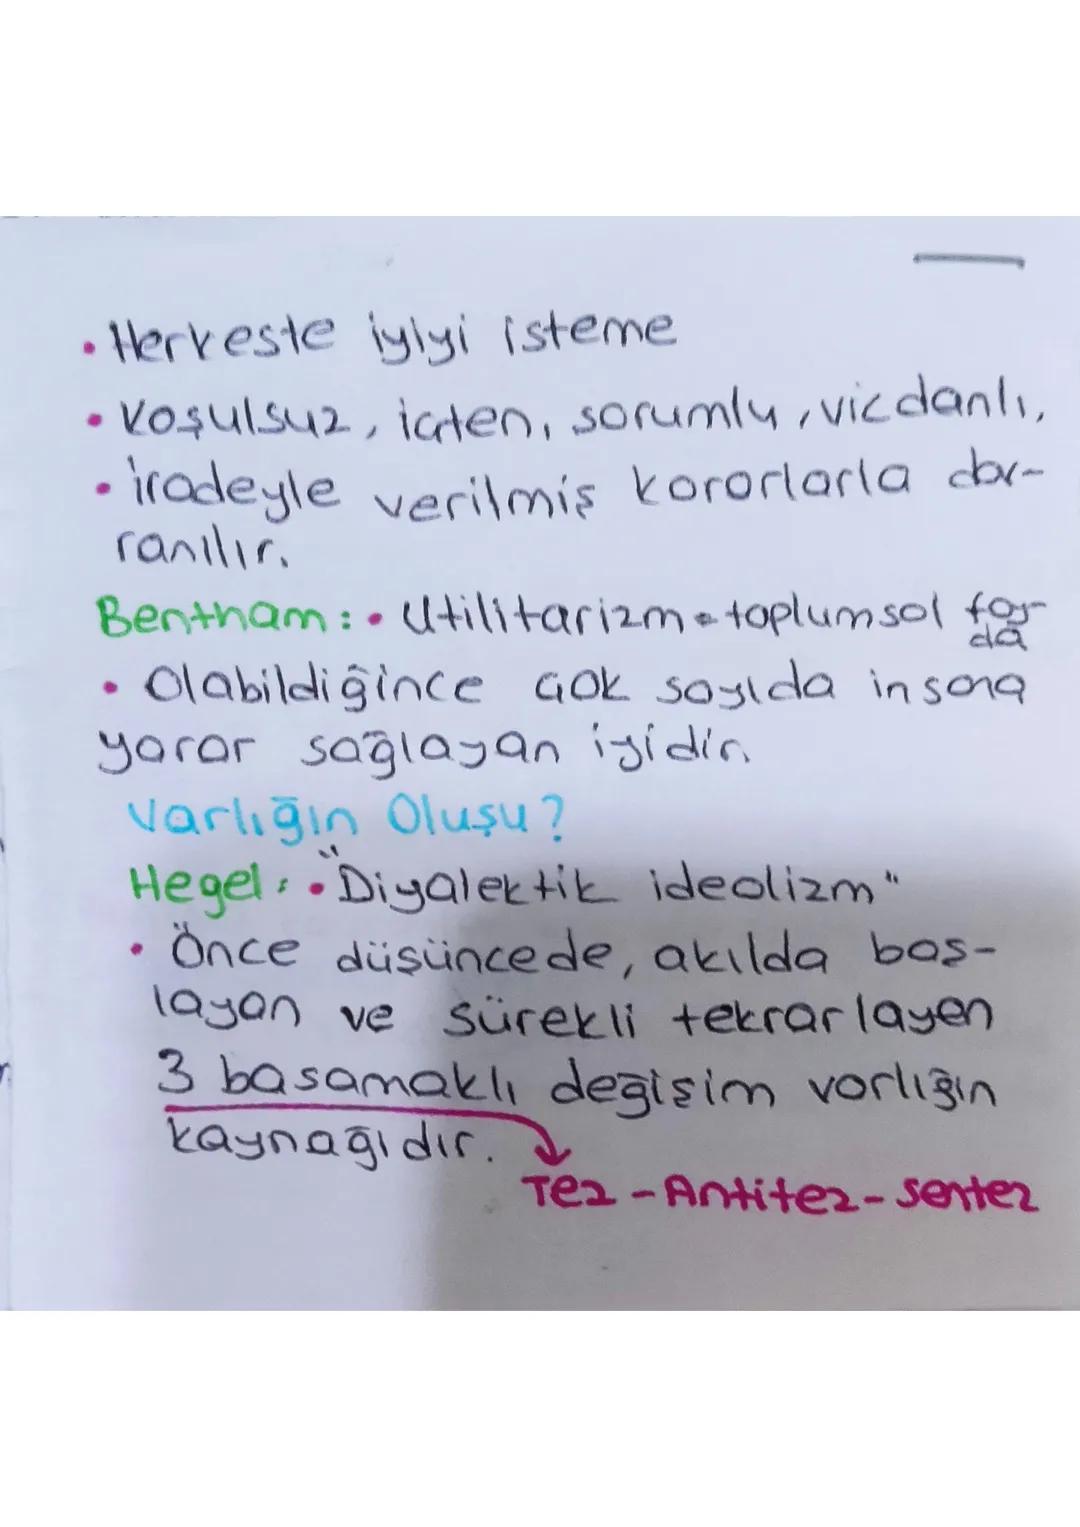 • Herkeste iyiyi isteme
• Koşulsuz, içten, sorumlu, vicdanlı,
• iradeyle verilmiş kararlarla dav-
ranılır.
Bentham: • Utilitarizm = toplumsal fay-
da
• Olabildiğince çok sayıda insana
yarar sağlayan iyidir.
Varlığın Oluşu?
Hegel: • "Diyalektik idealizm"
• Önce düşüncede, akılda baş-
layan ve sürekli tekrarlayan
3 basamaklı değişim varlığın
kaynağıdır.
Tez - Antitez - Sentez